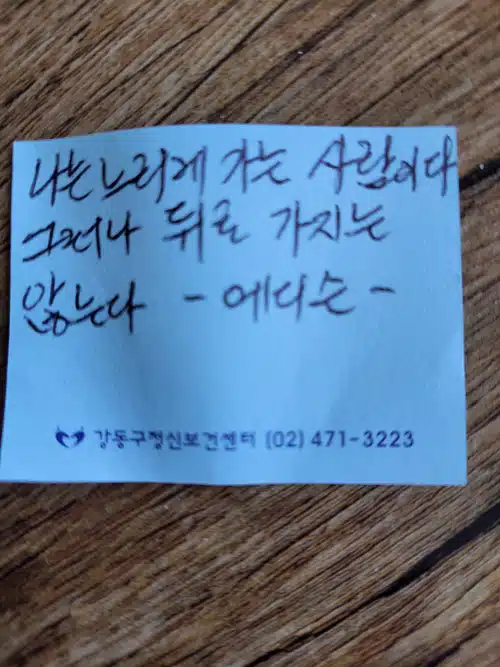 나는 느리게 가는 사람이다
그러나 뒤로 가지는
않는다 - 에디슨 -
강동구정신보건센터 (02) 471-3223